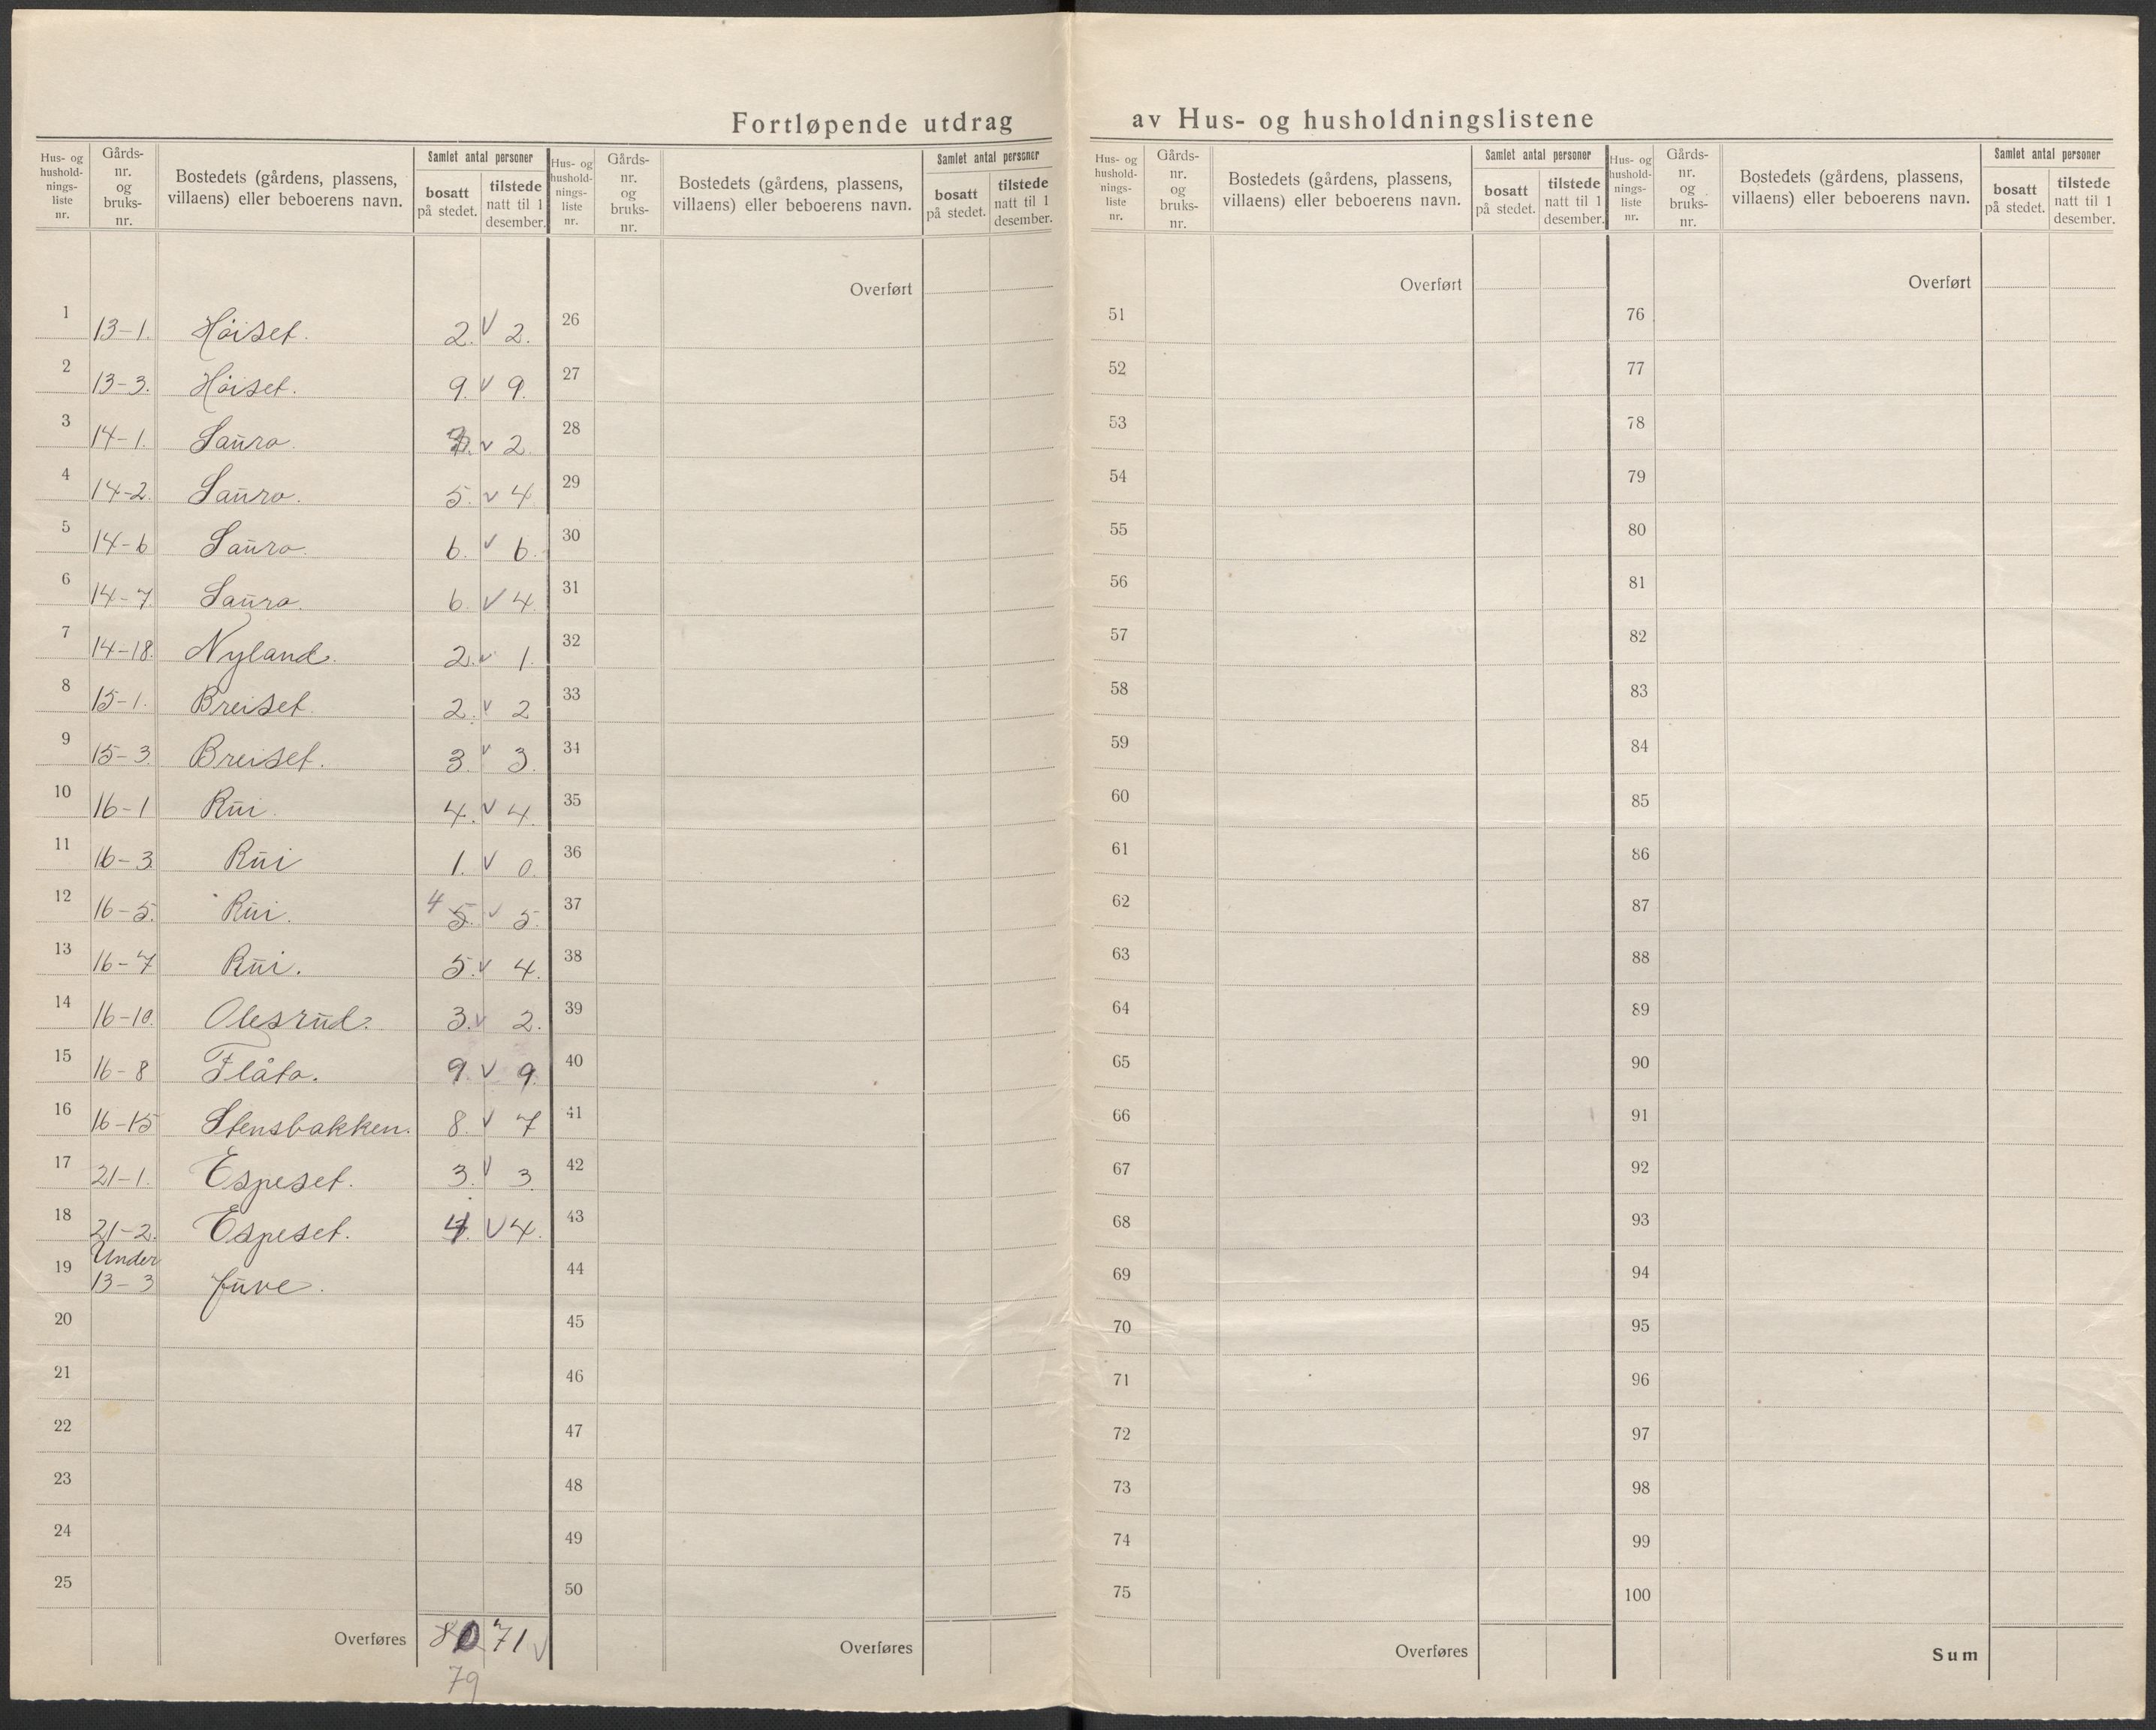 Fortløpende utdrag av Hus- og husholdningslistene
Hus- og hushold-nings-liste nr. Gårds-nr. og bruks-nr. Bostedets (gårdens, plassens, villaens) eller beboerens navn. Samlet antal personer bosatt på stedet. tilstede natt til 1 desember.
Hus- og hushold-nings-liste nr. Gårds-nr. og bruks-nr. Bostedets (gårdens, plassens, villaens) eller beboerens navn. Samlet antal personer bosatt på stedet. tilstede natt til 1 desember.
Hus- og hushold-nings-liste nr. Gårds-nr. og bruks-nr. Bostedets (gårdens, plassens, villaens) eller beboerens navn. Samlet antal personer bosatt på stedet. tilstede natt til 1 desember.
Hus- og hushold-nings-liste nr. Gårds-nr. og bruks-nr. Bostedets (gårdens, plassens, villaens) eller beboerens navn. Samlet antal personer bosatt på stedet. tilstede natt til 1 desember.
Overført Overført Overført
1 13-1. Høiset. 2. v 2. 26 51 76
2 13-3. Høiset. 9. v 9. 27 52 77
3 14-1. Saura. v 2. 28 53 78
4 14-2. Saura. 5. v 4. 29 54 79
5 14-6 Saura. 6. v 6. 30 55 80
6 14-7. Saura. 6. v 4. 31 56 81
7 14-18. Nyland. 2. v 1. 32 57 82
8 15-1. Breiset. 2. v 2 33 58 83
9 15-3. Breiset. 3. v 3. 34 59 84
10 16-1 Rui. 4. v 4. 35 60 85
11 16-3. Rui 1. v 0. 36 61 86
12 16-5. Rui. 4 5. v 5. 37 62 87
13 16-7 Rui. 5. v 4. 38 63 88
14 16-10. Olesrud. 3. v 2. 39 64 89
15 16-8 Flåta. 9. v 9. 40 65 90
16 16-15 Stensbakken. 8. v 7 41 66 91
17 21-1. Espeset. 3. v 3. 42 67 92
18 21-2. Espeset. 4. v 4. 43 68 93
19 Under 13-3 Juve. 44 69 94
20 45 70 95
21 46 71 96
22 47 72 97
23 48 73 98
24 49 74 99
25 50 75 100
Overføres 80 71 v Overføres Overføres Sum
79